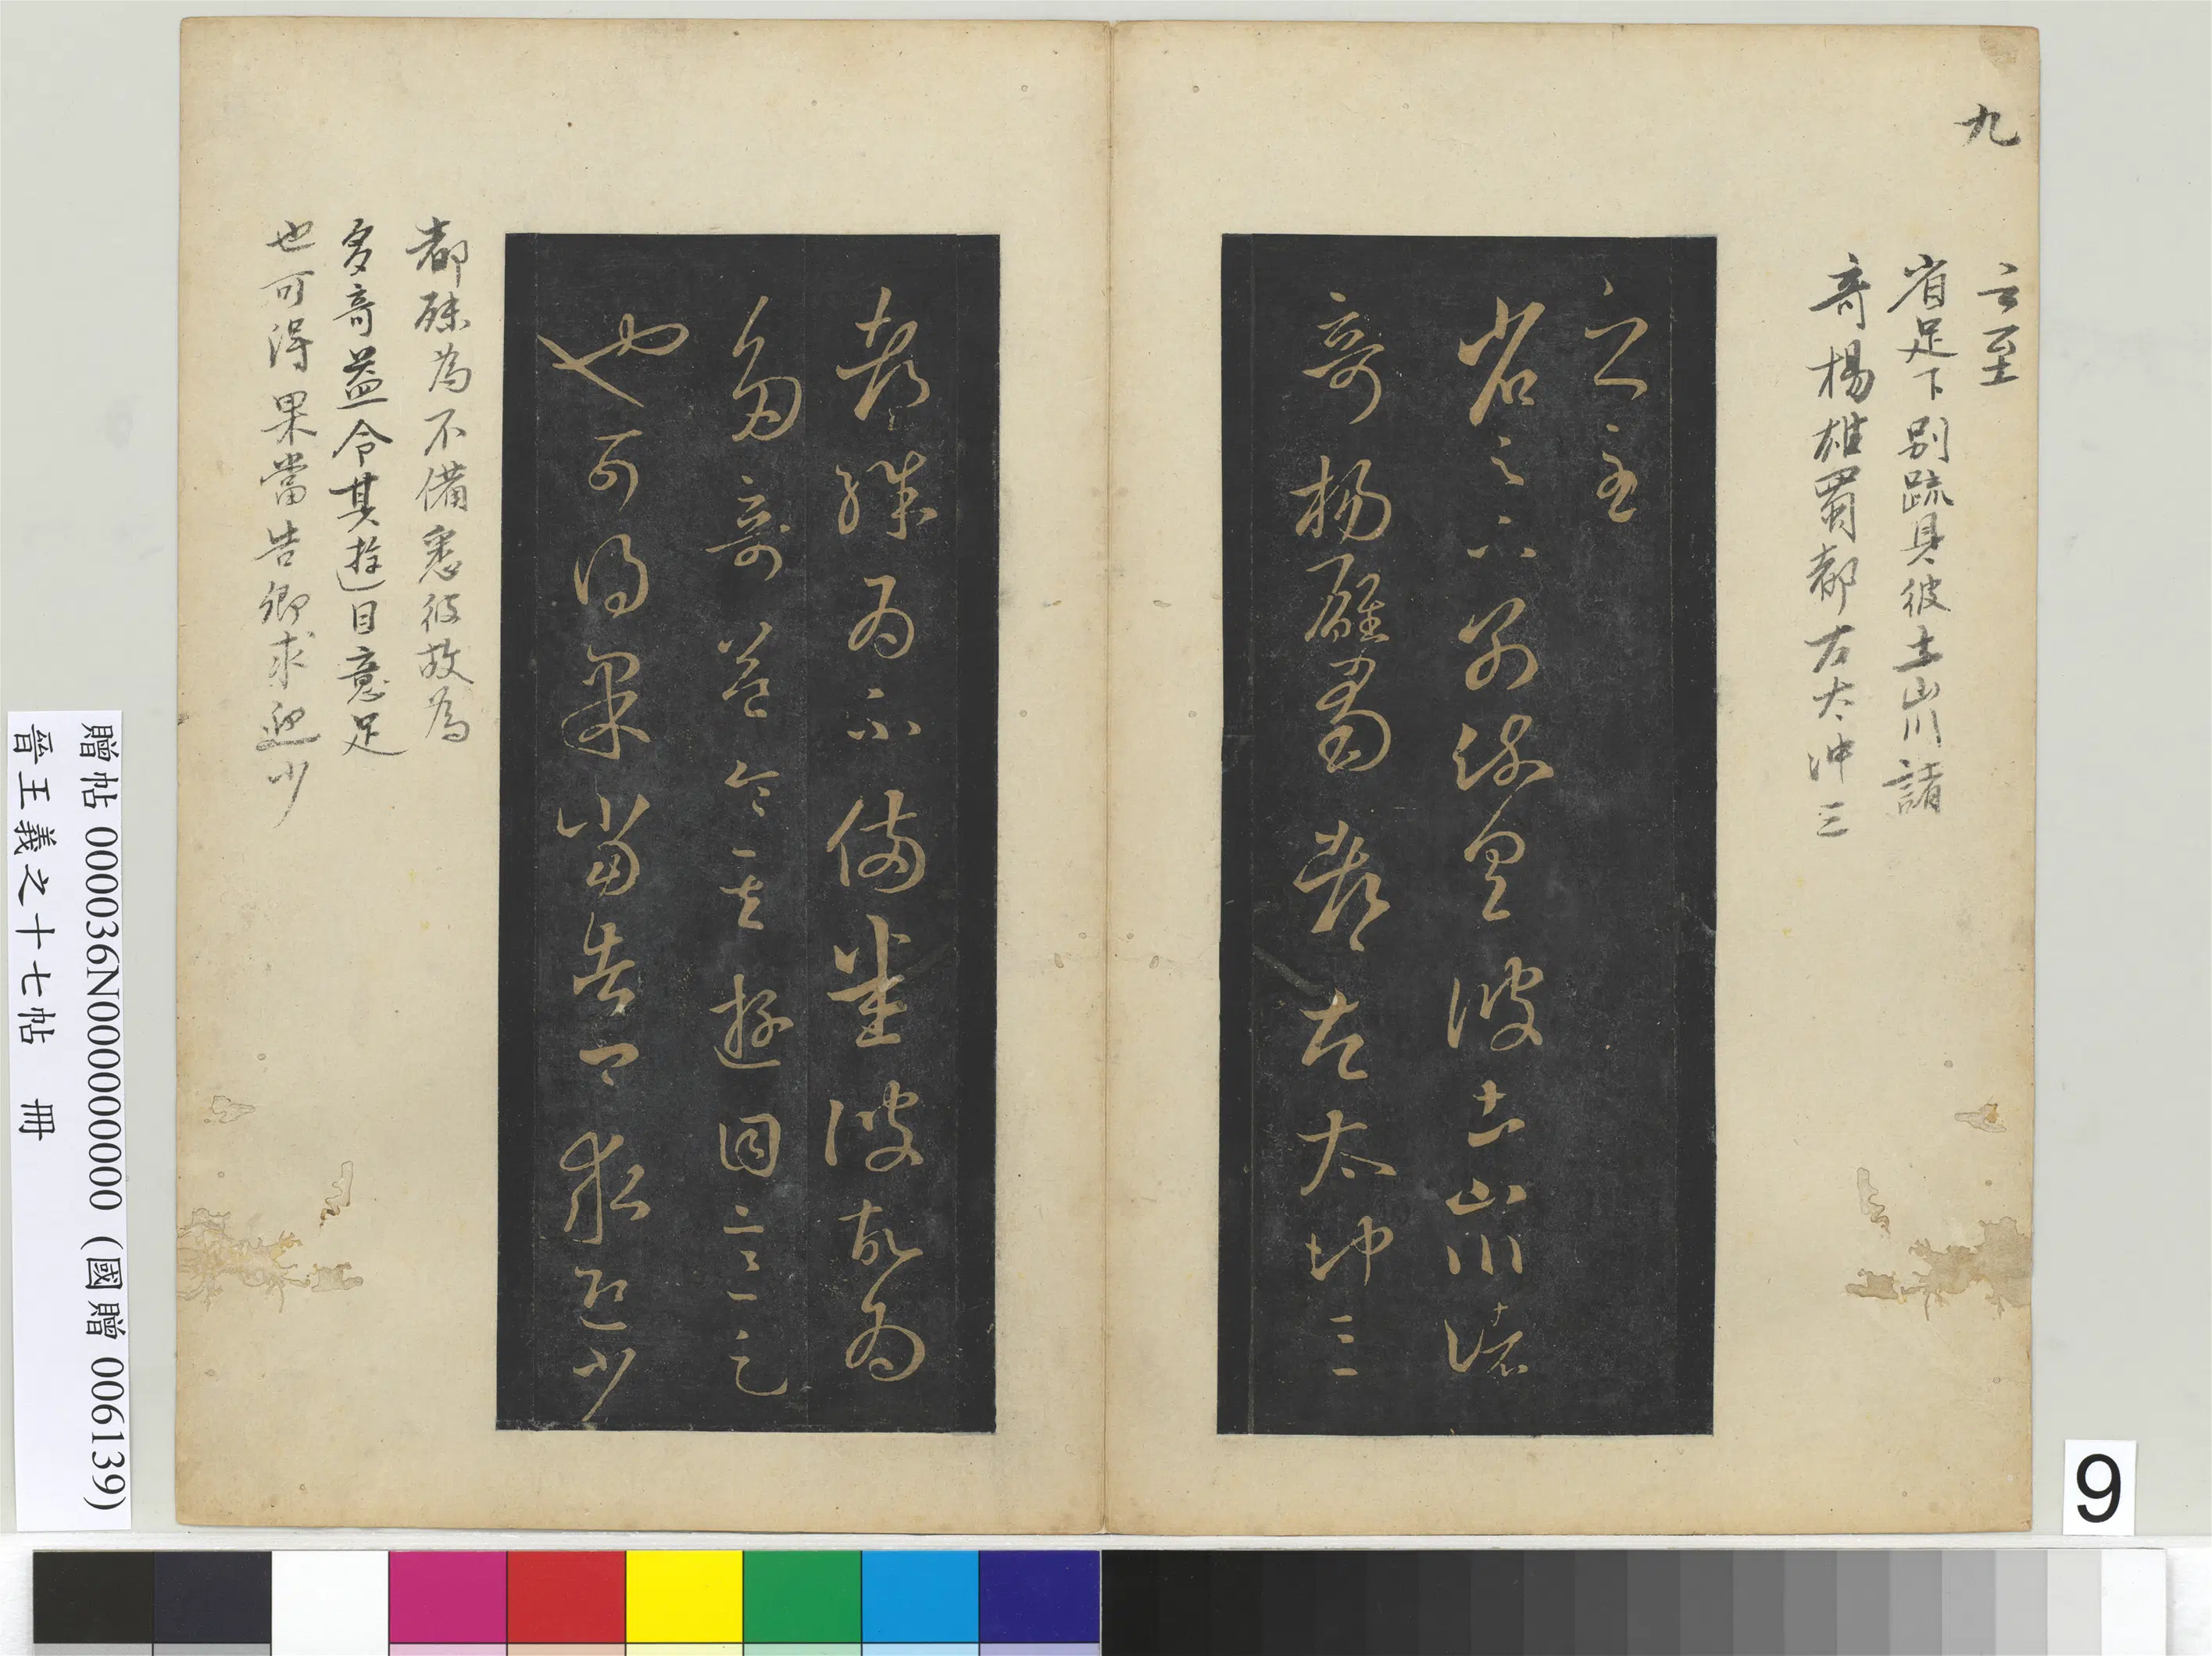 九
云至
省足下別疏具彼土山川諸
奇楊雄蜀都左太冲三
之至
省足下別疏具彼土山川諸
奇楊雄蜀都左太冲三
都殊為不備悉彼故為
多奇益令其遊目意足
也可得果當告卿求迎少
都殊為不備悉彼故為
多奇益令其遊目意足
也可得果當告卿求迎少
贈帖 000036N000000000 (國贈 006139)
晉王羲之十七帖 冊
9